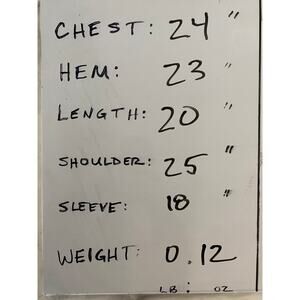 CHEST: 24 "
HEM: 23 "
LENGTH: 20 "
SHOULDER: 25 "
SLEEVE: 18 "
WEIGHT: 0.12
LB : OZ